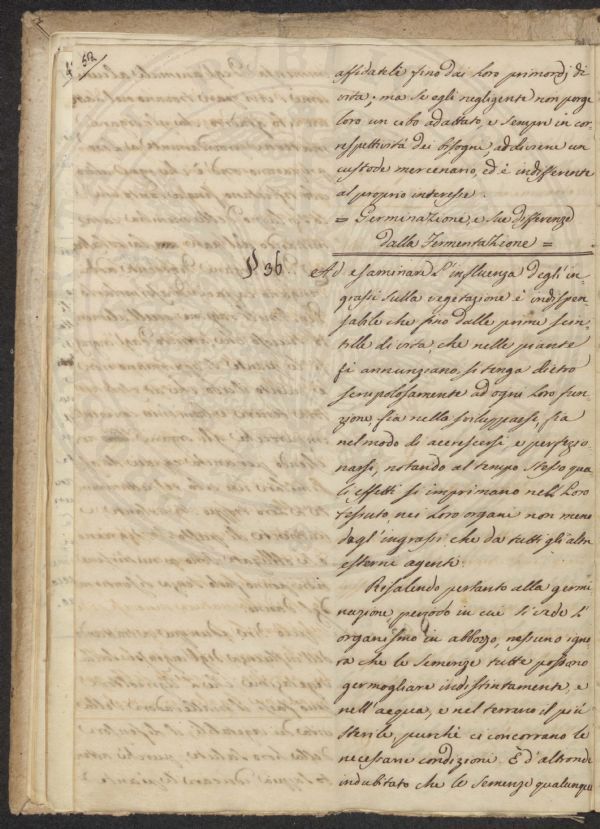 52
affidateli fino dai loro primordj di
vita; ma se egli negligente non porge
loro un cibo adattato, e sempre in cor-
respettività dei bisogni, addiviene un
custode mercenario, ed è indifferente
al proprio interesse.
= Germinazione, e sue differenze
dalla Fermentazione =
§ 36. Ad esaminare l'influenza degl'in-
grassi sulla vegetazione è indispen-
sabile che fino dalle prime scin-
tille di vita, che nelle piante
si annunziano, si tenga dietro
scrupolosamente ad ogni loro fun-
zione, sia nello svilupparsi, sia
nel modo di accrescersi, e perfezio-
narsi, notando al tempo stesso qua-
li effetti si imprimano nel loro
tessuto, nei loro organi non meno
dagl'ingrassi che da tutti gli altri
esterni agenti.
Risalendo pertanto alla germi-
nazione, periodo in cui si vede l'
organismo in abbozzo, nessuno igno-
ra che le semenze tutte possano
germogliare indistintamente, e
nell'acqua, e nel terreno il più
sterile, purchè ci concorrano le
necessarie condizioni. È d'altronde
indubitato che le semenze qualunque